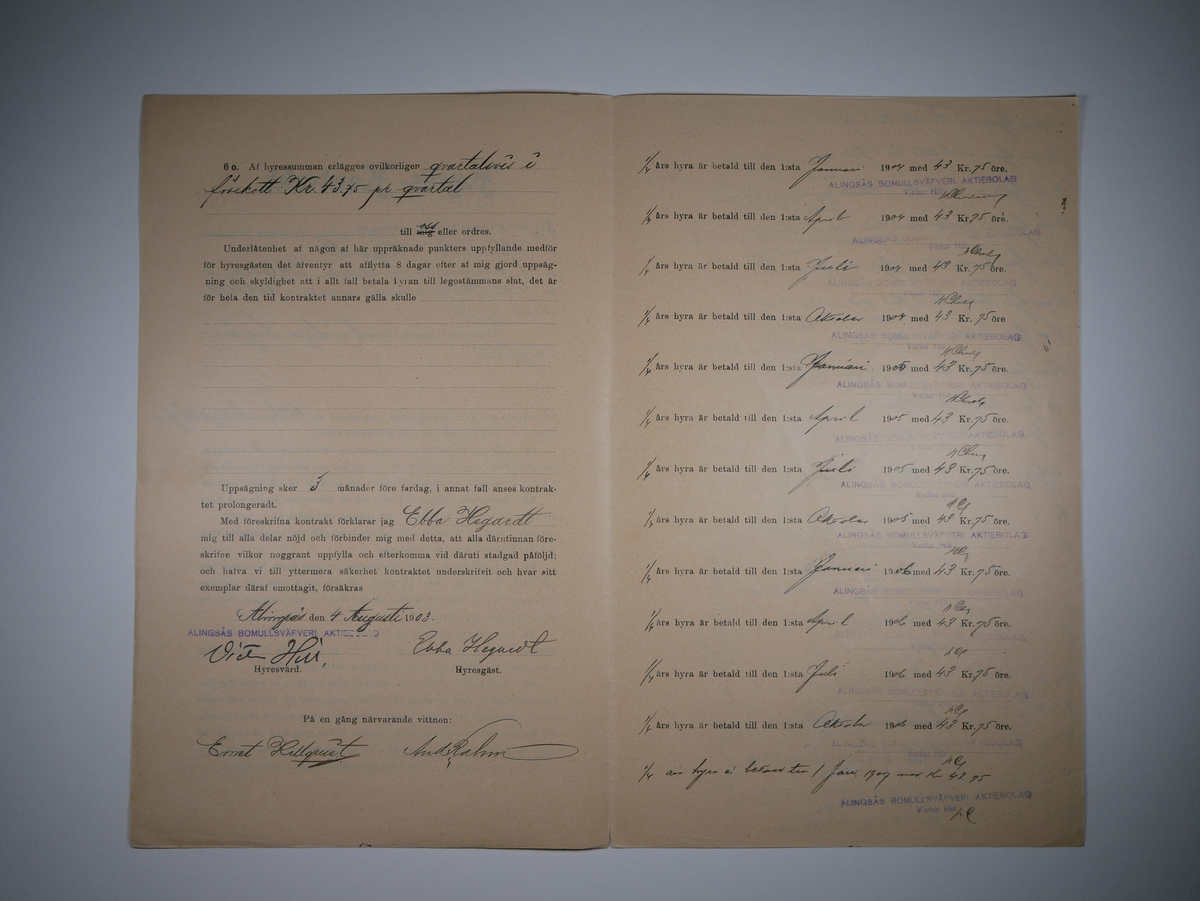 6 o. Af hyressumman erlägges ovilkorligen qvartalsvis i
förskott Kr. 43.75 pr qvartal
till mig oss eller ordres.
Underlåtenhet af någon af här uppräknade punkters uppfyllande medför
för hyresgästen det äfventyr att afflytta 8 dagar efter af mig gjord uppsäg-
ning och skyldighet att i allt fall betala hyran till legostämmans slut, det är
för hela den tid kontraktet annars gälla skulle
Uppsägning sker 3 månader före fardag, i annat fall anses kontrak-
tet prolongeradt.
Med föreskrifna kontrakt förklarar jag Ebba Hegardt
mig till alla delar nöjd och förbinder mig med detta, att alla däruti nnan före-
skrifne vilkor noggrant uppfylla och efterkomma vid däruti stadgad påföljd;
och hafva vi till yttermera säkerhet kontraktet underskrifvit och hvar sitt
exemplar däraf emottagit, försäkras
Alingsås den 4 Augusti 1903.
ALINGSÅS BOMULLSVÄFVERI AKTIEBOLAG
Victor Hill, Ebba Hegardt
Hyresvärd. Hyresgäst.
På en gång närvarande vittnen:
Ernst Hellquist
1/4 års hyra är betald till den 1:sta Januari 1904 med 43 Kr. 75 öre.
ALINGSÅS BOMULLSVÄFVERI AKTIEBOLAG
Victor Hill
1/4 års hyra är betald till den 1:sta April 1904 med 43 Kr. 75 öre.
ALINGSÅS BOMULLSVÄFVERI AKTIEBOLAG
Victor Hill
1/4 års hyra är betald till den 1:sta Juli 1904 med 43 Kr. 75 öre.
ALINGSÅS BOMULLSVÄFVERI AKTIEBOLAG
1/4 års hyra är betald till den 1:sta Oktober 1904 med 43 Kr. 75 öre
ALINGSÅS BOMULLSVÄFVERI AKTIEBOLAG
1/4 års hyra är betald till den 1:sta Januari 1905 med 43 Kr. 75 öre.
ALINGSÅS BOMULLSVÄFVERI AKTIEBOLAG
Victor Hill
1/4 års hyra är betald till den 1:sta April 1905 med 43 Kr. 75 öre.
ALINGSÅS BOMULLSVÄFVERI AKTIEBOLAG
1/4 års hyra är betald till den 1:sta Juli 1905 med 43 Kr. 75 öre.
ALINGSÅS BOMULLSVÄFVERI AKTIEBOLAG
Victor Hill
1/4 års hyra är betald till den 1:sta Oktober 1905 med 43 Kr. 75 öre.
ALINGSÅS BOMULLSVÄFVERI AKTIEBOLAG
1/4 års hyra är betald till den 1:sta Januari 1906 med 43 Kr. 75 öre.
ALINGSÅS BOMULLSVÄFVERI AKTIEBOLAG
1/4 års hyra är betald till den 1:sta April 1906 med 43 Kr. 75 öre.
ALINGSÅS BOMULLSVÄFVERI AKTIEBOLAG
1/4 års hyra är betald till den 1:sta Juli 1906 med 43 Kr. 75 öre.
ALINGSÅS BOMULLSVÄFVERI AKTIEBOLAG
1/4 års hyra är betald till den 1:sta Oktober 1906 med 43 Kr. 75 öre.
ALINGSÅS BOMULLSVÄFVERI AKTIEBOLAG
Victor Hill
1/4 års hyra är betald till 1 Jan 1907 med Kr 43.75
ALINGSÅS BOMULLSVÄFVERI AKTIEBOLAG
Victor Hill